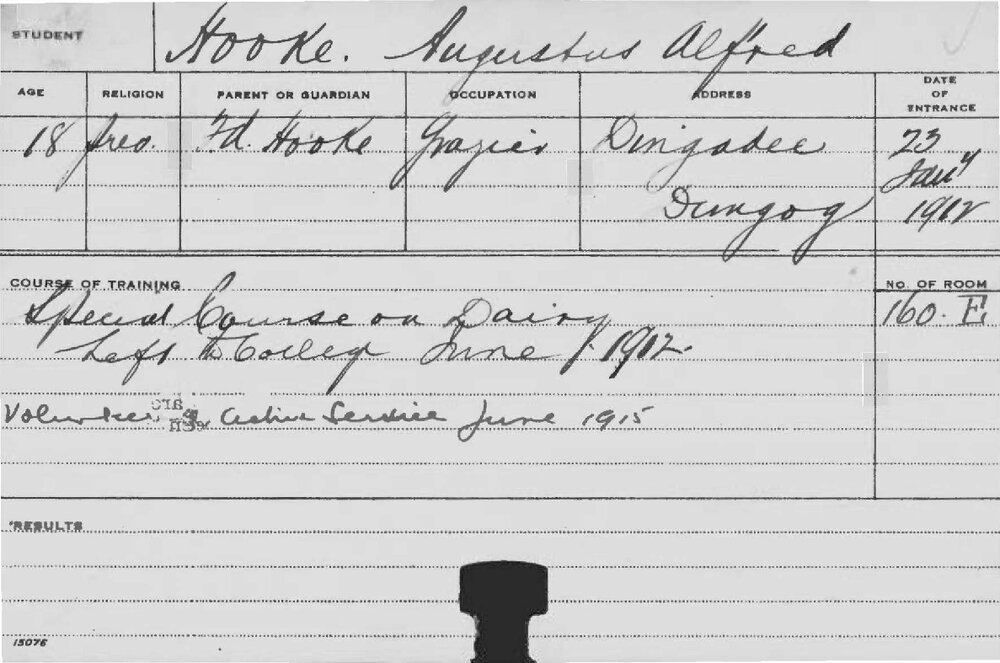 STUDENT Hooke. Augustus Alfred
AGE RELIGION PARENT OR GUARDIAN OCCUPATION ADDRESS DATE OF ENTRANCE
18 Pres. Fd. Hooke Grazier Dingadee 23
Jany
Dungog 1912
COURSE OF TRAINING NO. OF ROOM
Special Course on Dairy 160. E
Left College June 1912.
Volunteer Active Service June 1915
*RESULTS
15076